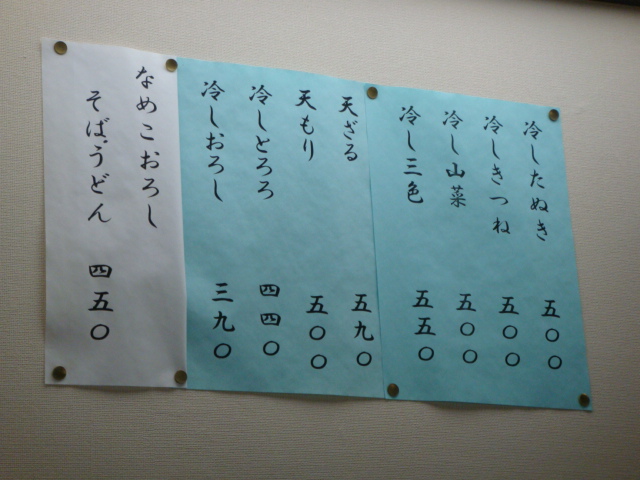 冷したぬき 五〇〇
冷しきつね 五〇〇
冷し山菜 五〇〇
冷し三色 五五〇
天ざる 五九〇
天もり 五〇〇
冷しとろろ 四四〇
冷しおろし 三九〇
なめこおろし
そば、うどん 四五〇